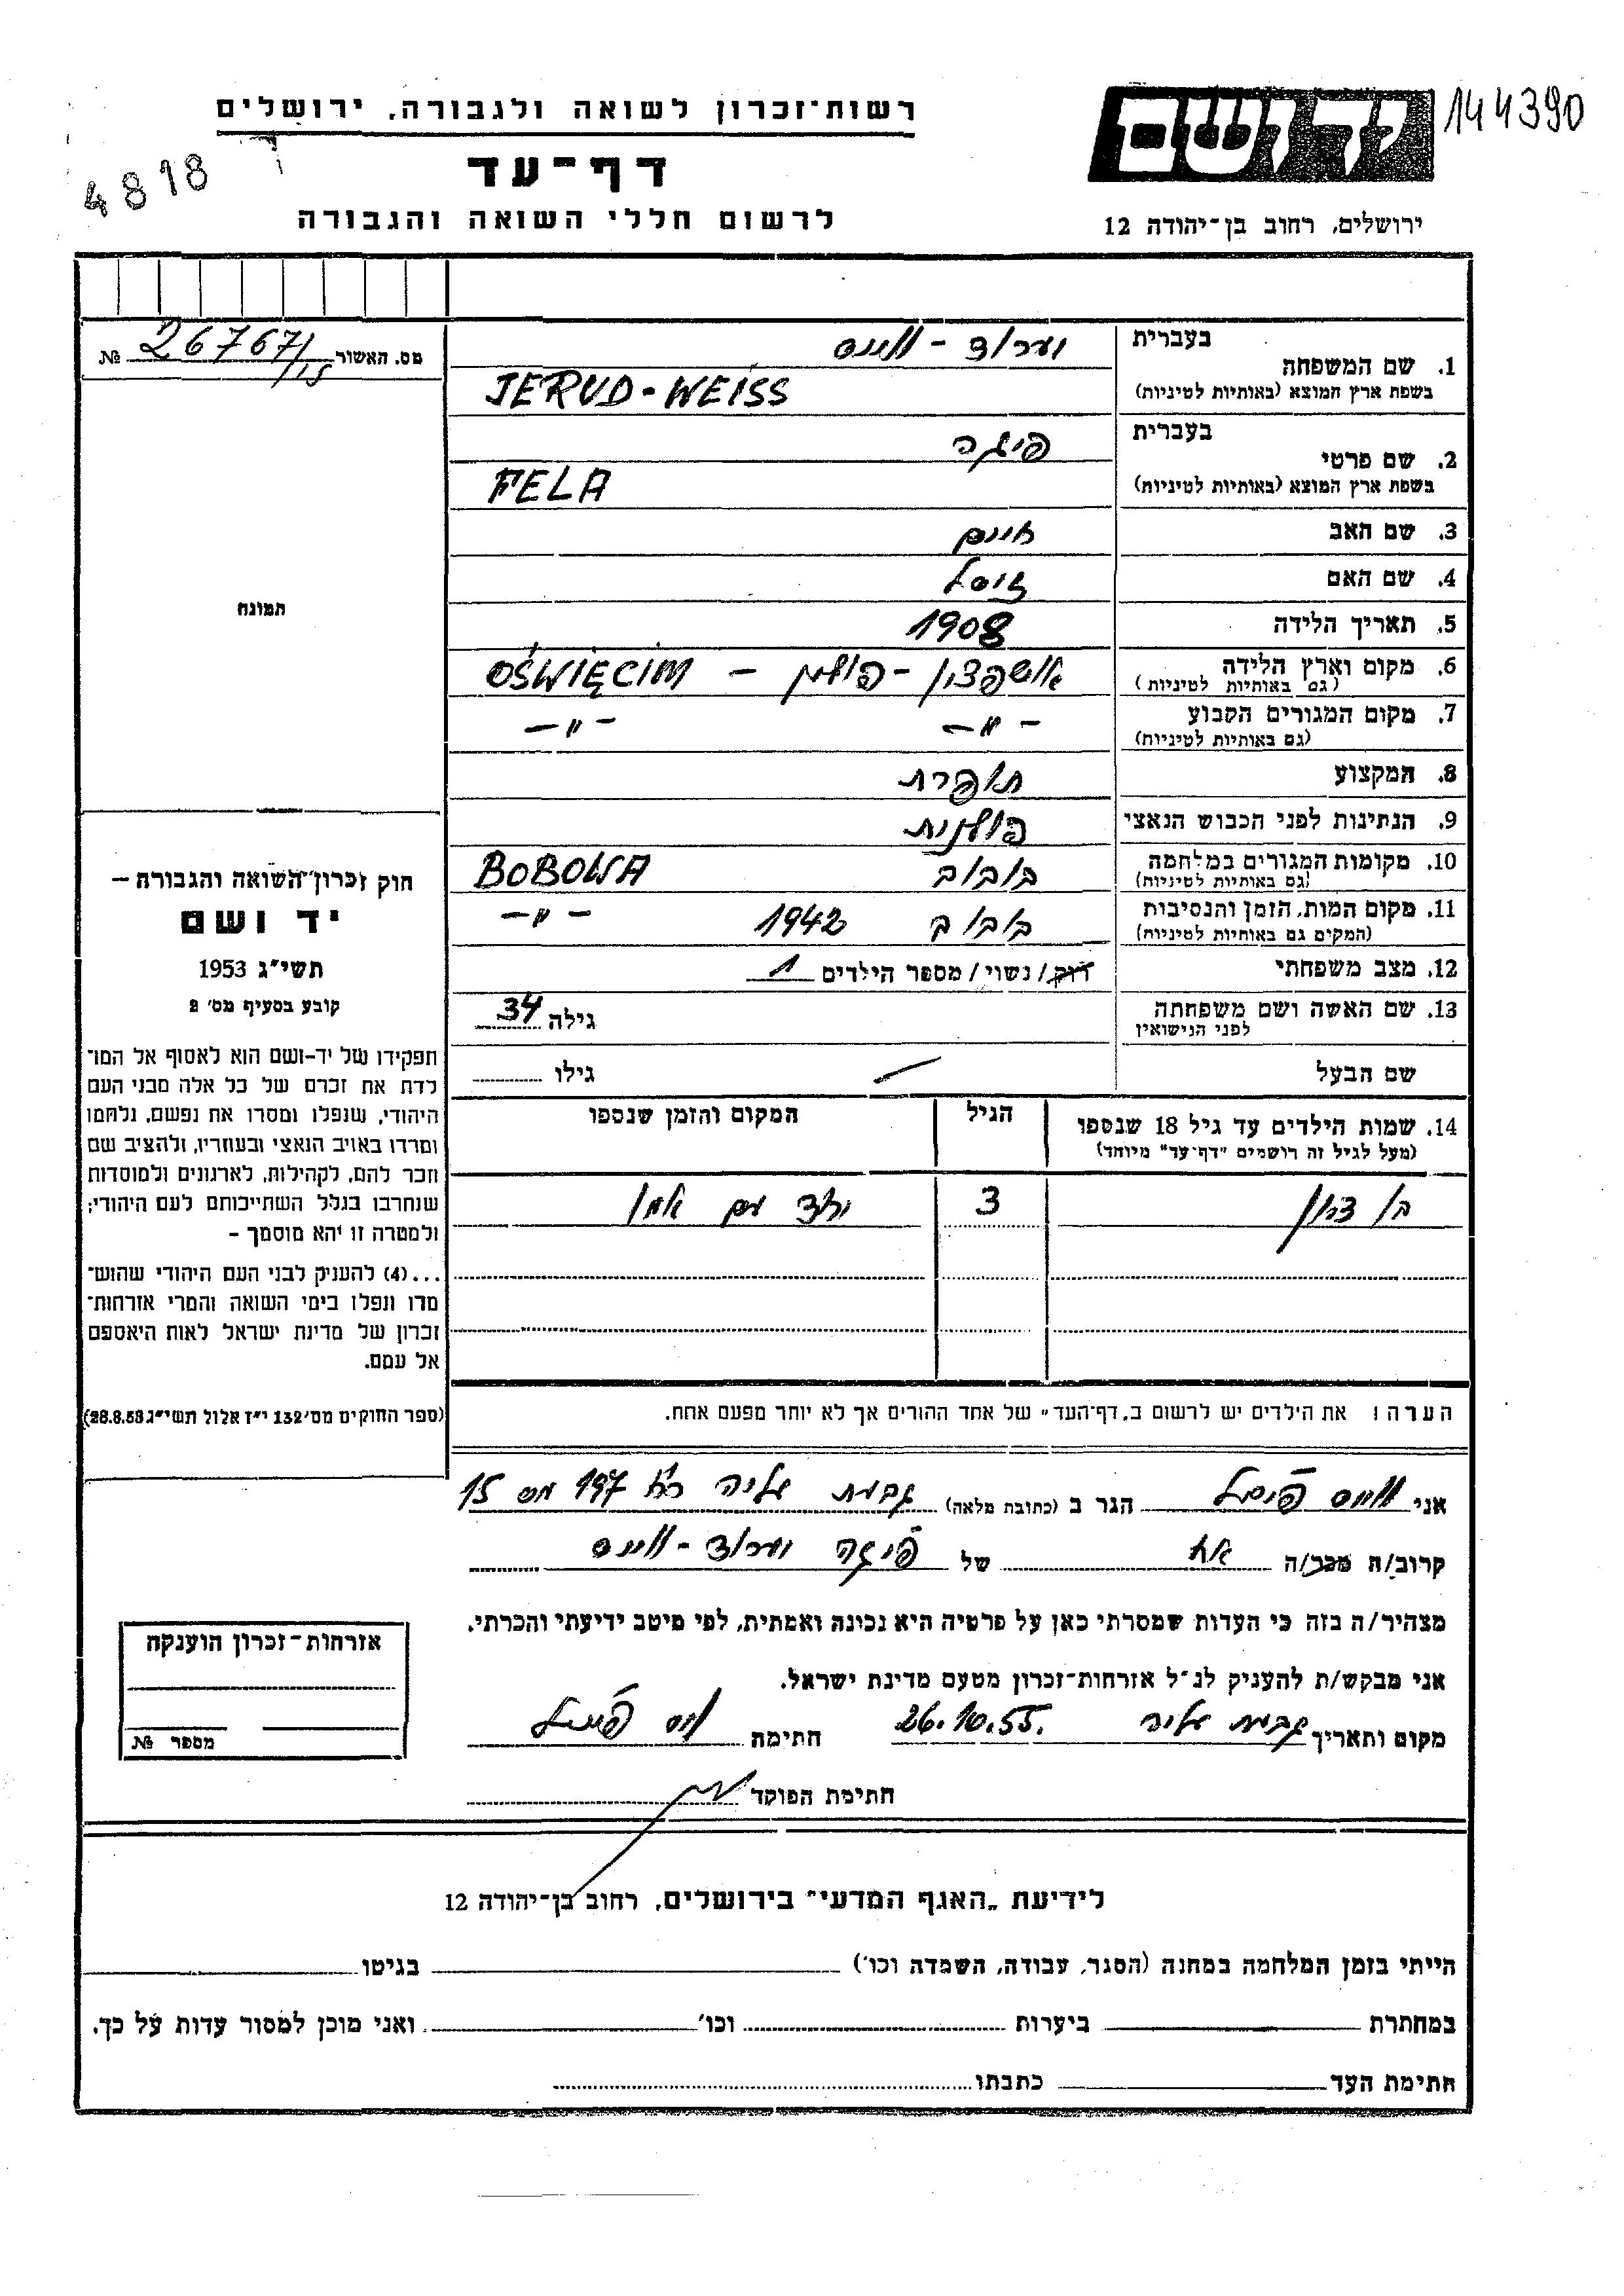 144390
יד ושם
רשות־זכרון לשואה ולגבורה, ירושלים
4818
דף־עד
ירושלים, רחוב בן־יהודה 12
לרשום חללי השואה והגבורה
מס. האשור 26767/15 №
1. שם המשפחה
בעברית יערוד - ווייס
בשפת ארץ המוצא (באותיות לטיניות) JERUD-WEISS
2. שם פרטי
בעברית פיגה
בשפת ארץ המוצא (באותיות לטיניות) FELA
3. שם האב חיים
4. שם האם
5. תאריך הלידה 1908
6. מקום וארץ הלידה אושפצין - פולין - OŚWIĘCIM
(גם באותיות לטיניות)
7. מקום המגורים הקבוע -"- -"-
(גם באותיות לטיניות)
8. המקצוע תופרת
9. הנתינות לפני הכבוש הנאצי פולנית
10. מקומות המגורים במלחמה בובוב BOBOWA
(גם באותיות לטיניות)
11. מקום המות, הזמן והנסיבות בובוב 1942 -"-
(המקום גם באותיות לטיניות)
12. מצב משפחתי רוק/נשוי/מספר הילדים 1
13. שם האשה ושם משפחתה גילה 34
לפני הנישואין
שם הבעל גילו
14. שמות הילדים עד גיל 18 שנספו הגיל המקום והזמן שנספו
(מעל לגיל זה רושמים "דף־עד" מיוחד)
בן ציון 3 יחד עם אמו
הערה: את הילדים יש לרשום ב„דף־העד" של אחד ההורים אך לא יותר מפעם אחת.
תמונה
חוק זכרון־השואה והגבורה –
יד ושם
תשי"ג 1953
קובע בסעיף מס' 2
תפקידו של יד-ושם הוא לאסוף אל המו־
לדת את זכרם של כל אלה מבני העם
היהודי, שנפלו ומסרו את נפשם, נלחמו
ומרדו באויב הנאצי ובעוזריו, ולהציב שם
וזכר להם, לקהילות, לארגונים ולמוסדות
שנחרבו בגלל השתייכותם לעם היהודי;
ולמטרה זו יהא מוסמך –
...(4) להעניק לבני העם היהודי שהוש־
מדו ונפלו בימי השואה והמרי אזרחות־
זכרון של מדינת ישראל לאות היאספם
אל עמם.
(ספר החוקים מס' 132 י"ז אלול תשי"ג 28.8.53)
אני ווייס הגר ב (כתובת מלאה) גבעת עליה 197 מס 15
קרוב/ה מכר/ה אח של פיגה יערוד - ווייס
מצהיר/ה בזה כי העדות שמסרתי כאן על פרטיה היא נכונה ואמתית, לפי מיטב ידיעתי והכרתי.
אני מבקש/ת להעניק לנ"ל אזרחות־זכרון מטעם מדינת ישראל.
מקום ותאריך גבעת עליה 26.10.55. חתימה
חתימת הפוקד
אזרחות־זכרון הוענקה
מספר №
לידיעת „האגף המדעי" בירושלים, רחוב בן־יהודה 12
הייתי בזמן המלחמה במחנה (הסגר, עבודה, השמדה וכו') בגיטו
במחתרת ביערות וכו' ואני מוכן למסור עדות על כך.
חתימת העד כתבתו